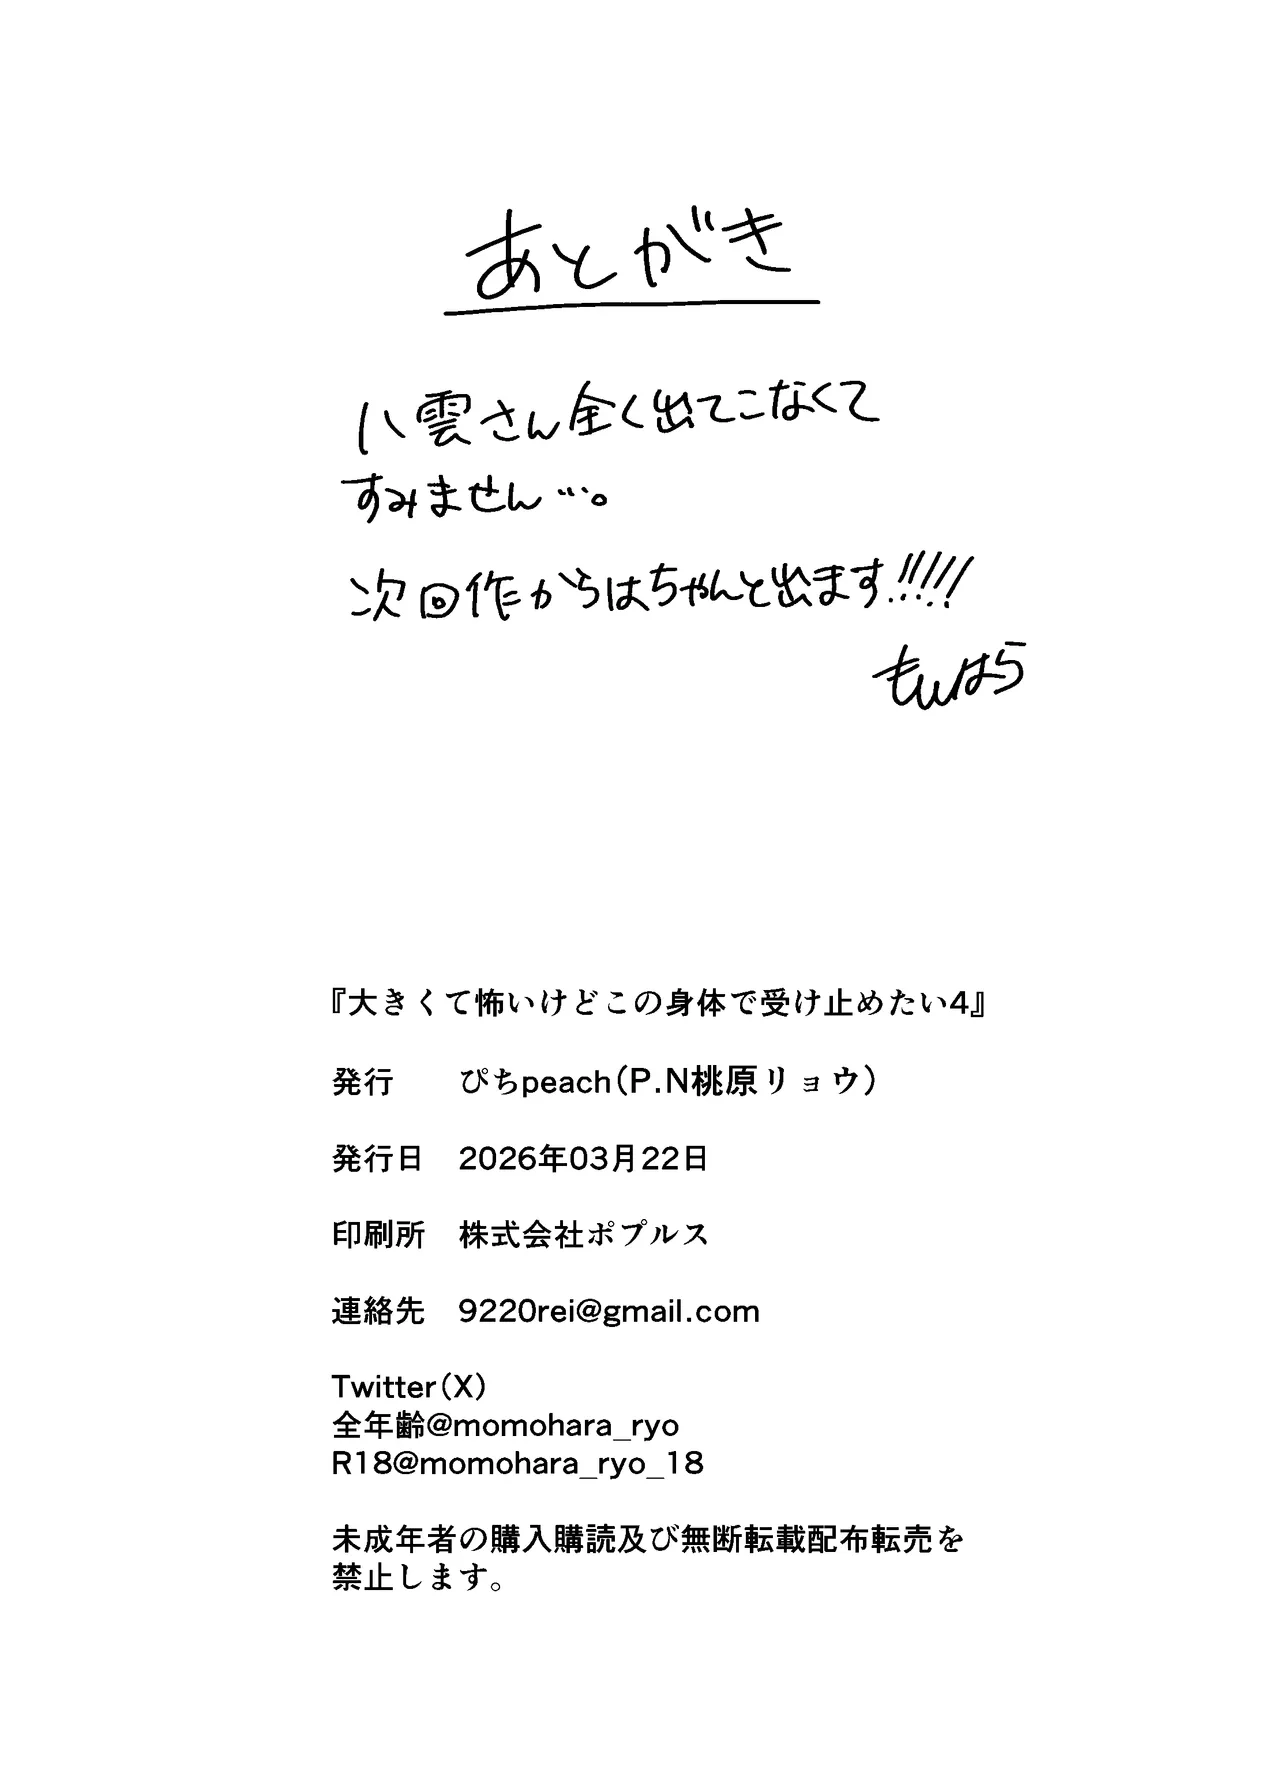 あとがき
八雲さん全く出てこなくて
すみません…。
次回作からはちゃんと出ます!!!!!
ももはら
『大きくて怖いけどこの身体で受け止めたい4』
発行　ぴちpeach(P.N桃原リョウ)
発行日　2026年03月22日
印刷所　株式会社ポプルス
連絡先　9220rei@gmail.com
Twitter(X)
全年齢@momohara_ryo
R18@momohara_ryo_18
未成年者の購入購読及び無断転載配布転売を
禁止します。